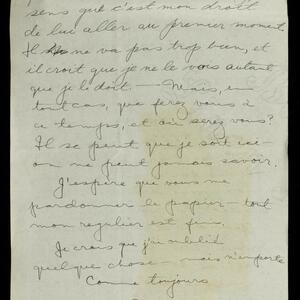 sens que c'est mon droit
de lui aller au premier moment.
Il ne va pas trop bien, et
il croit que je ne le vois autant
que je le dois. — Mais, en
tout cas, que ferez vous à
ce temps, et où serez vous?
Il se peut que je soit ici —
on ne peut jamais savoir.
J'espère que vous me
pardonner le papier — tout
mon regulier est fini.
Je crois que j'ai oublié
quelque chose — mais n'importe
Comme toujours